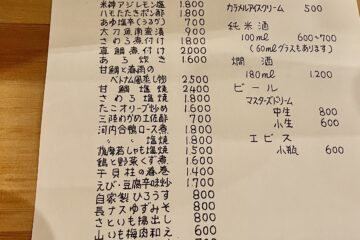 米神アジレモン塩 1.800
ハモたたきポン酢 1.800
あゆ塩辛(うるか) 700
太刀魚南蛮漬 900
さわら煮付け 1.800
真鯛煮付け 2.000
あら炊き 1.600
甘鯛と春雨の
ベトナム風蒸し物 2.500
甘鯛塩焼 2400
さわら塩焼 1.800
たこオリーブ炒め 1.600
三陸わかめ土佐酢 700
河内合鴨ロース煮 1.800
〃 〃 塩焼 1.800
薩摩若しゃも塩焼 1.500
鶏と野菜くず煮 1.600
干貝柱の春巻 1.400
えび・豆腐辛味炒 1.700
自家製ひろうす 800
長ナスゆずみそ 800
さといも揚出し 800
山いも梅肉和え 600
カラメルアイスクリーム 500
純米酒
100ml 600~700
(60mlグラスもあります)
燗酒
180ml 1.200
ビール
マスターズドリーム
中生 800
小生 600
エビス
小瓶 600